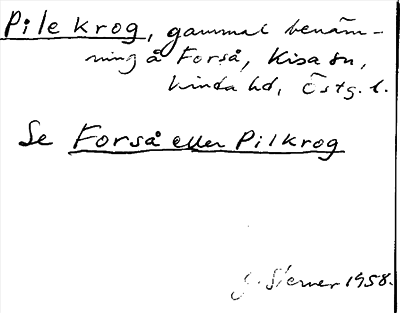 Pile krog, gammal benäm-
ning å Forså, Kisa sn,
Kinda hd, Östg. l.
Se Forså eller Pilkrog
G. Sterner 1958.